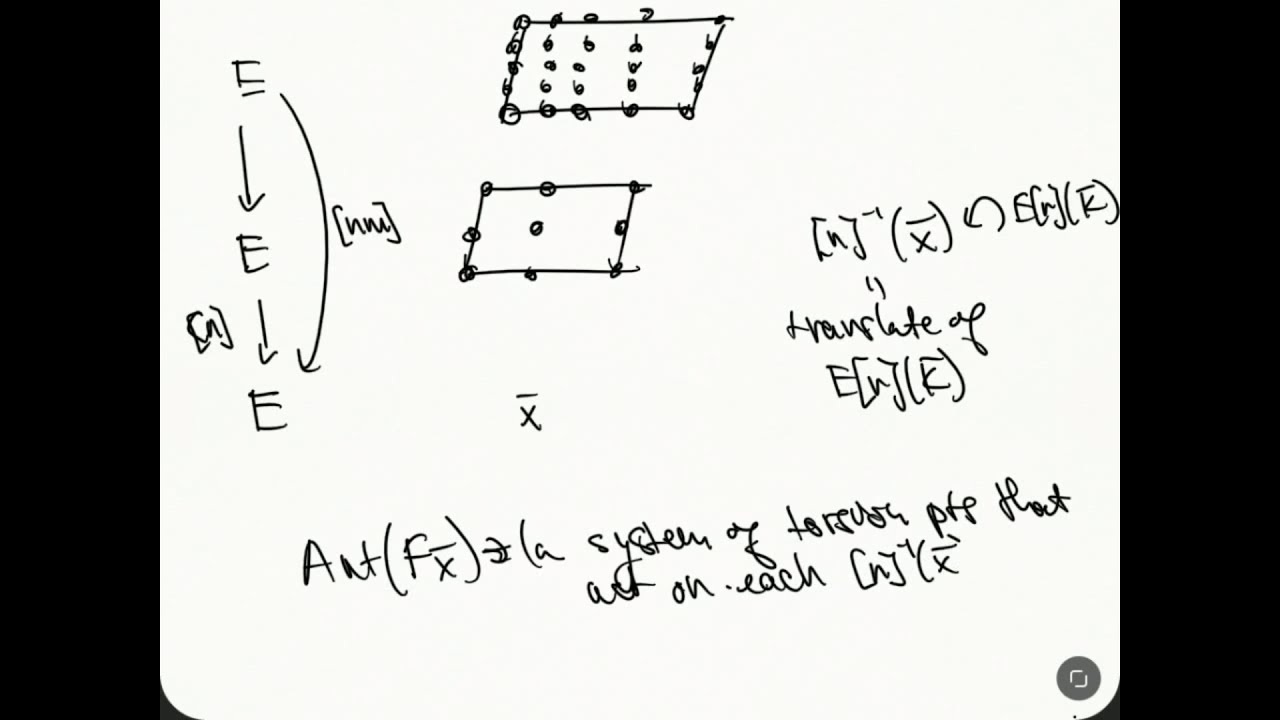 E
[nm]
E
[n]
E
x̄
[n]⁻¹(x̄) ↶ E[n](K̄)
"
translate of
E[n](K̄)
Aut(Fx̄) ∋ (a system of torsion pts that
act on each [n]⁻¹(x̄